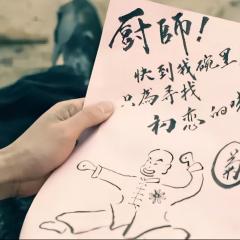 厨師！
快到我碗里
只為尋找
初恋的味